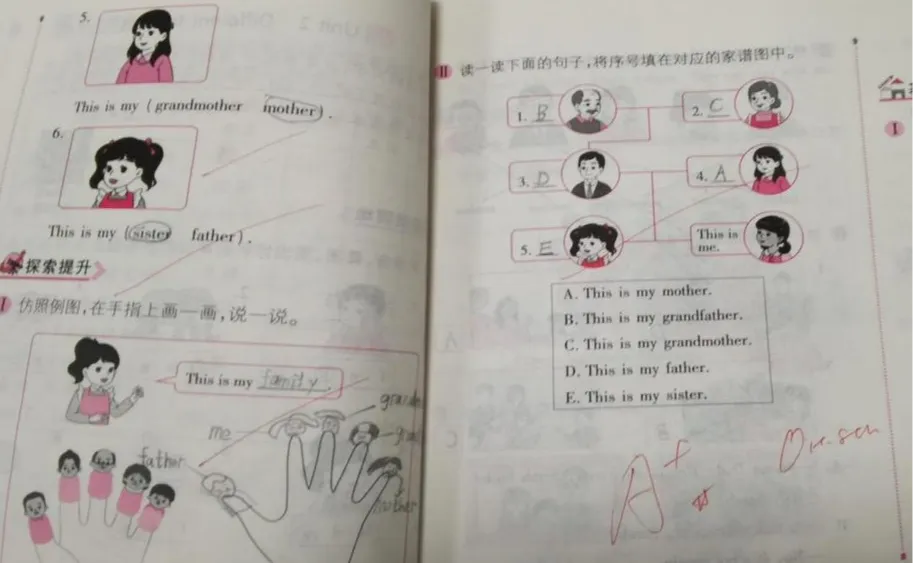 5.
This is my (grandmother mother).
6.
This is my (sister father).
探索提升
I 仿照例图,在手指上画一画,说一说。
This is my family.
me
father
mother
II 读一读下面的句子,将序号填在对应的家谱图中。
1. B
2. C
3. D
4. A
5. E
This is
me.
A. This is my mother.
B. This is my grandfather.
C. This is my grandmother.
D. This is my father.
E. This is my sister.
A+
I